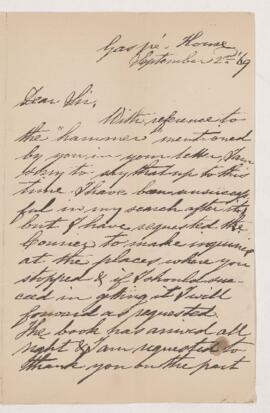 Gaspé House
September 2nd '69
Dear Sir,
With reference to
the "hammer" mentioned
by you in your letter, I am
sorry to say that up to this
time I have been unsuccess
ful in my search after it,
but I have requested the
to make inquiries
at the places where you
stopped & if I should suc
ceed in getting it I will
forward as requested.
The book has arrived all
right & I am requested to
thank you on the part